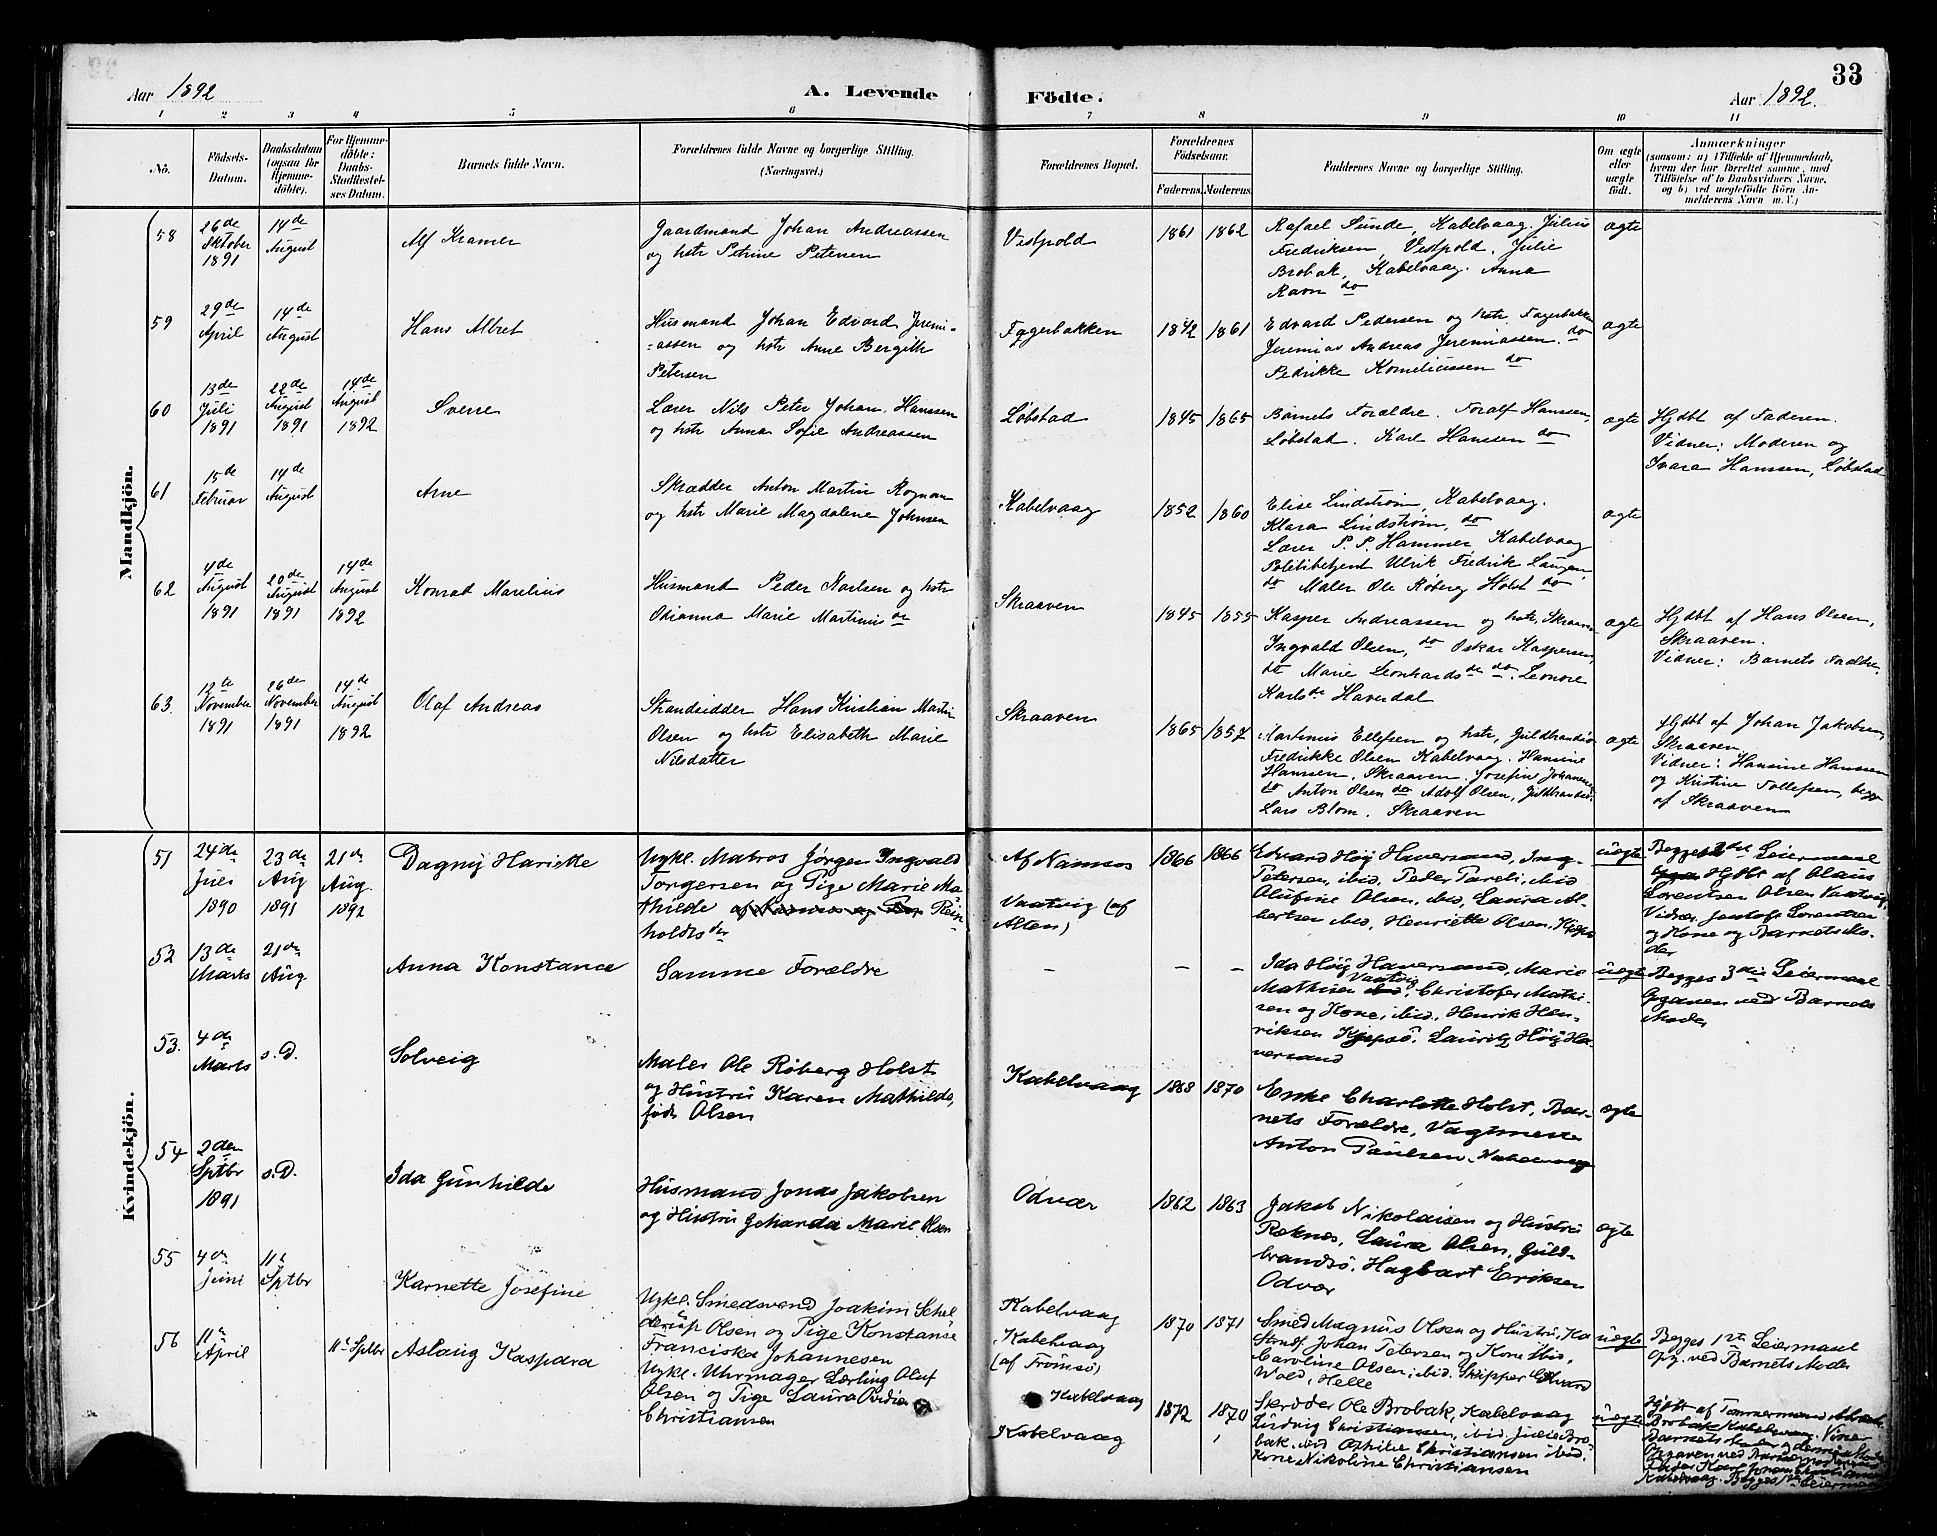 33
Aar 1892
A. Levende
Födte.
Aar 1892.
1 2 3 4 5 6 7 8 9 10 11
No.
Födsels-
Datum.
Daabsdatum
(ogsaa for
Hjemme-
döbte).
For Hjemme-
döbte:
Daabs-
Stadfæstel-
ses Datum.
Barnets fulde Navn.
Forældrenes fulde Navne og borgerlige Stilling.
(Næringsvei.)
Forældrenes Bopæl.
Forældrenes
Födselsaar.
Faderens. Moderens.
Faddernes Navne og borgerlige Stilling.
Om ægte
eller
uægte
födt.
Anmærkninger
(saasom: a) i Tilfælde af Hjemmedaab,
hvem der har forrettet samme, med
Tilföielse af to Daabsvidners Navne,
og b) ved uægtefödte Börn An-
melderens Navn m. V.)
Mandkjön.
58
26de
Oktober
1891
14de
August
Alf Kramer
Gaardmand Johan Andreassen
og hstr Petrine Petersen
Vestpold
1861 1862
Rafael Sunde, Kabelvaag. Julius
Fredriksen, Vestpold. Julie
Brobak, Kabelvaag. Anna
Ravn do
ægte
59
29de
April
14de
August
Hans Albret
Husmand Johan Edvard Jeremi-
-assen og hstr Anne Bergith
Petersen
Fagerbakken
1842 1861
Edvard Pedersen og hstr. Fagerbakken
Jeremias Andreas Jeremiassen. do
Pedrikke Korneliussen do
ægte
60
13de
Juli
1891
22de
August
1891
14de
August
1892
Sverre
Lærer Nils Peter Johan Hanssen
og hstr Anna Sofie Andreassen
Løbstad
1845 1865
Barnets Forældre. Toralf Hanssen,
Løbstad. Karl Hanssen do
ægte
Hjdbt af Faderen.
Vidner: Moderen og
Ivara Hanssen, Løbstad
61
15de
Februar
14de
August
Arne
Skrædder Anton Martin Rognan
og hstr Marie Magdalene Johnsen
Kabelvaag
1852 1860
Elise Lindstrøm, Kabelvaag.
Klara Lindstrøm, do
Lærer P. P. Hammer, Kabelvaag
Politibetjent Ulrik Fredrik Langen
do Maler Ole Røberg Holst do
ægte
62
4de
August
1891
20de
August
1891
14de
August
1892
Konrad Marelius
Husmand Peder Karlsen og hstr
Odianna Marie Martinus dr
Skraaven
1845 1855
Kasper Andreassen og hstr, Skraaven
Ingvald Olsen, do Oskar Kaspersen,
do Marie Leonhards dr do. Leonore
Karls dr Haverdal
ægte
Hjdbt af Hans Olsen,
Skraaven.
Vidner: Barnets Forældre.
63.
12te
November
1891
26de
November
1891
14de
August
1892
Olaf Andreas
Strandsidder Hans Kristian Martin
Olsen og hstr Elisabeth Marie
Nilsdatter
Skraaven
1865 1857
Martinus Ellefsen og hstr, Guldbrandsø
Fredrikke Olsen Kabelvaag. Hansine
Hanssen, Skraaven. Josefine Johansen
do Anton Olsen do Adolf Olsen, Guldbrandsø.
Lars Blom. Skraaven
ægte
Hjdbt af Johan Jakobsen,
Skraaven.
Vidner: Hansine Hanssen
og Kristine Tollefsen, begge
af Skraaven
Kvindekjön.
51
24de
Juli
1890
23de
Aug
1891
21de
Aug.
1892
Dagny Hariette
Ugkl. Matros Jørgen Ingvald
Torgersen og Pige Marie Ma-
thilde Rein-
holdts dtr
Af Namsos
Vaatvig (af
Alten)
1866 1866
Edvard Høy Haversand, Ing.
Petersen, ibid, Peder Pareli, ibid
Olufine Olsen, ibid, Laura Al-
bertsen ibid, Henriette Olsen,
uægte
Begges 2det Leiermaal
Hjdbt af Olaus
Lorentsen Olsen Vaatvig.
Vidner Jentoft Lorentsen
og Kone og Barnets Mo-
der
52
13de
Marts
21de
Aug
Anna Konstance
Samme Forældre
- - -
Ida Høy Haversand, Marie
Mathisen Vaatvig, Christofer Mathi-
sen og Kone, ibid, Henrik Hen-
riksen Kjeøsø, Lauritz Høy Ha-
versand
uægte
Begges 3die Leiermaal
Opgaven ved Barnets
Moder
53.
4de
Marts
s. D.
Solveig
Maler Ole Røberg Holst
og Hustru Karen Mathilde,
født Olsen
Kabelvaag
1868 1870
Enke Charlotte Holst, Bar-
nets Forældre, Vagtmester
Anton Paulsen, Kabelvaag
ægte
54
2den
Sptbr
1891
s. D.
Ida Gunhilde
Husmand Jonas Jakobsen
og Hustru Geharda Marie Olsen
Odvær
1862 1863
Jakob Nikolaisen og Hustru
Reknes, Laura Olsen, Guld-
brandsø, Hagbart Eriksen
Odvær
ægte
55
4de
Juni
11te
Sptbr
Karnette Josefine
Ugkl. Smedsvend Joakim Schel
derup Olsen og Pige Konstanse
Franciska Johannesen
Kabelvaag
Kabelvaag
(af Tromsø)
1870 1871
Smed Magnus Olsen og Hustru, Ka
Johan Petersen og Kone ibid,
Caroline Olsen, ibid. Skipper Edvard
Wold, Helle
uægte
Begges 1ste Leiermaal
Opg. ved Barnets Moder
56
11te
April
11te Sptbr
Aslaug Kaspara
Ugkl. Uhrmager Lærling Oluf
Olsen og Pige Laura Ovidia
Christiansen
Kabelvaag
Kabelvaag
1872 1870
Skrædder Ole Brobak, Kabelvaag
Ludvig Christiansen, ibid. Julie Bro-
bak, ibid Othilie Christiansen ibid.
Kone Nikoline Christiansen
uægte
Hjdbt af Tømmermand
Brobak Kabelvaag. Vidner
Barnets Moder
Opgaven ved Barnets
Fader Karl Johan Christiansen
Kabelvaag. Begges 1ste Leiermaal